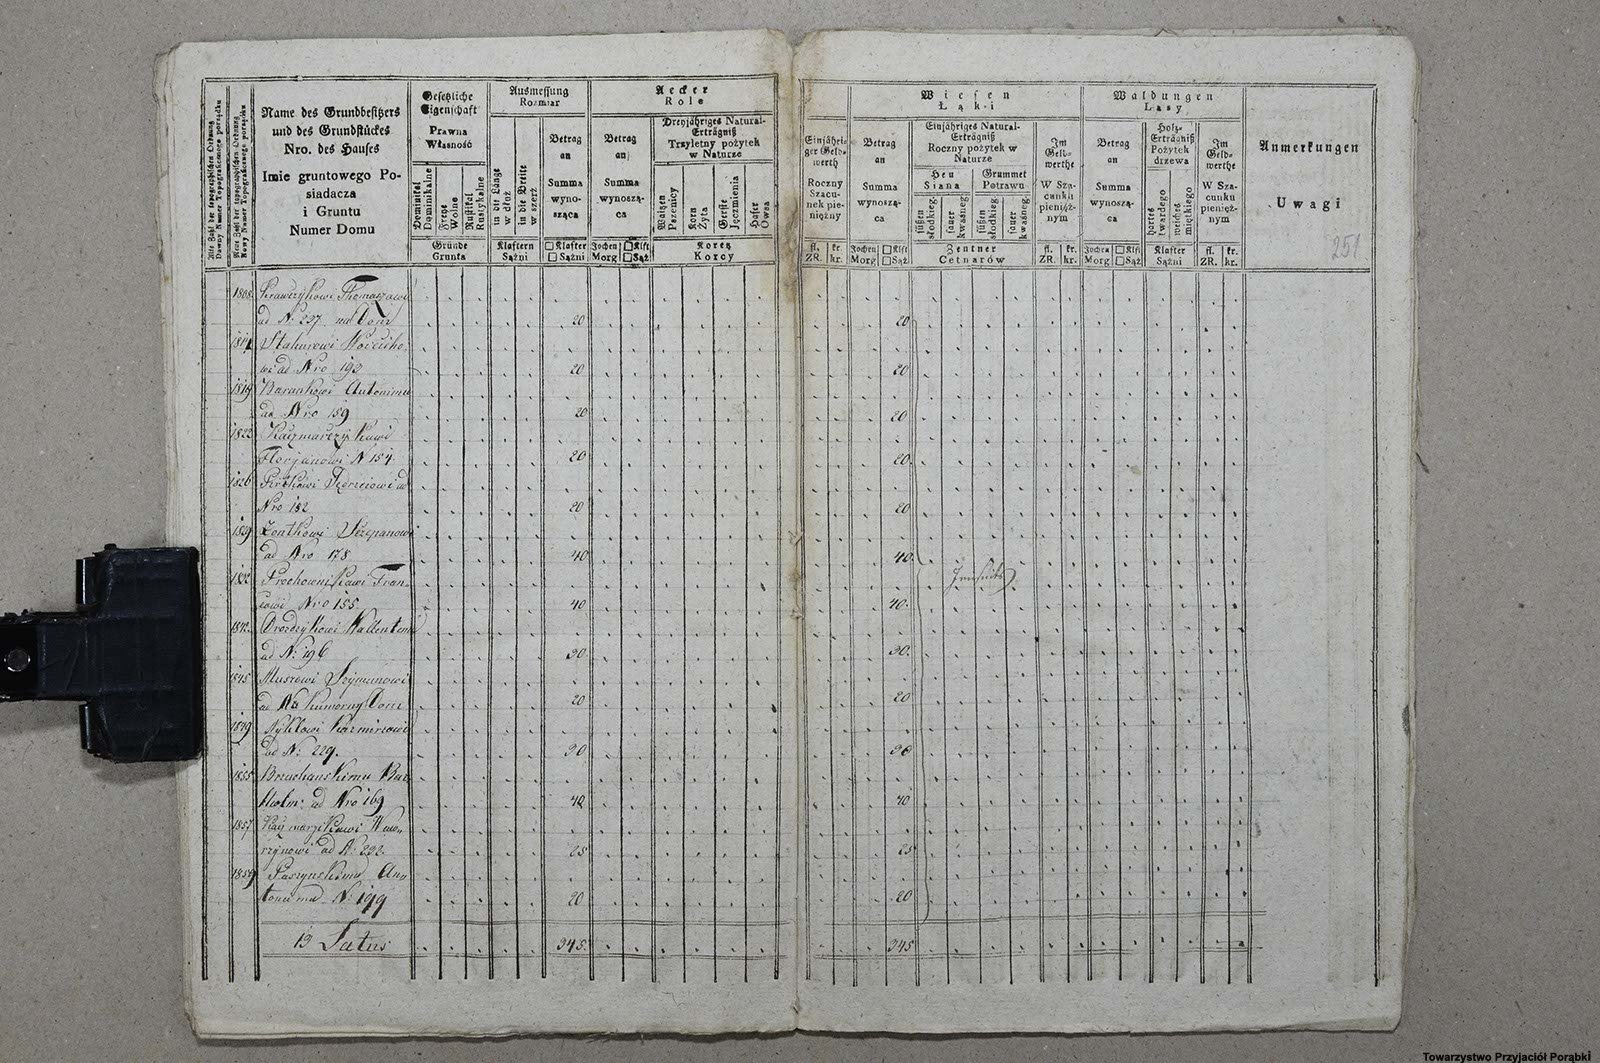 Alte Zahl der topographischen Ordnung
Dawny Numer Topograficznego porządku
Neue Zahl der topographischen Ordnung
Nowy Numer Topograficznego porządku
Name des Grundbesitzers
und des Grundstückes
Nro. des Hauses
Imie gruntowego Po-
siadacza
i Gruntu
Numer Domu
Gesetzliche
Eigenschaft
Prawna
Własność
Dominikal
Dominikalne
Freye
Wolne
Rustikal
Rustykalne
Gründe
Grunta
Ausmessung
Rozmiar
in die Länge
w dłuż
in die Breite
w szerż
Klaftern
Sążni
Betrag
an
Summa
wyno-
sząca
□ Klafter
□ Sążni
Aecker
Role
Betrag
an
Summa
wynoszą-
ca
Jochen □ Klft
Morg □ Sąż
Dreyjähriges Natural-
Erträgniß
Trzyletny pożytek
w Naturze
Waitzen
Pszenicy
Korn
Żyta
Gerste
Jęczmienia
Hafer
Owsa
Koretz
Korcy
Einjähri-
ger Geld-
werth
Roczny
Szacu-
nek pie-
niężny
fl. kr.
ZR. kr.
Wiesen
Łąki
Betrag
an
Summa
wynoszą-
ca
Jochen □ Klft
Morg □ Sąż
Einjähriges Natural-
Erträgniß
Roczny pożytek w
Naturze
Heu
Siana
Grummet
Potrawu
süßen
słodkieg.
sauer
kwaśneg.
süßen
słodkieg.
sauer
kwaśneg.
Zentner
Cetnarów
Im
Geld-
werthe
W Sza-
cunku
pienięż-
nym
fl. kr.
ZR. kr.
Waldungen
Lasy
Betrag
an
Summa
wynoszą-
ca
Jochen □ Klft
Morg □ Sąż
Holz-
Erträgniß
Pożytek
drzewa
hartes
twardego
weiches
miękkiego
Klafter
Sążni
Im
Geld-
werthe
W Sza-
cunku
pienięż-
nym
fl. kr.
ZR. kr.
Anmerkungen
Uwagi
251
1808 Krawczykowi Thomaszowi
ad N: 237 20 20
1814 Stahurowi Woicicho-
wi ad Nro 193 20 20
1819 Barankowi Antoniemu
ad Nro 159 20 20
1822 Kaczmarczykowi
Florjanowi N 154 20 20
1826 ad
Nro 182 20 20
1829 Zontkowi Sczepanowi
ad Nro 178 40 40
1832 Prochownikowi Fran-
cowi Nro 155 40 40
1842 Drozdzykowi Wallentemu
ad N: 196 30 30
1845 Musrowi Szymonowi
ad Na Kumorny Domu 20 20
1849 Nyklowi Kazmirzowi
ad N: 229. 30 30
1855 Bruchanskimu Bar-
tholm: ad Nro 169 40 40
1857 Kaczmarzikowi Waw-
rzynowi ad N: 232 25 25
1859 Paszynskimu An-
toniemu N: 199 20 20
13 Latus 345 345
Towarzystwo Przyjaciół Porąbki